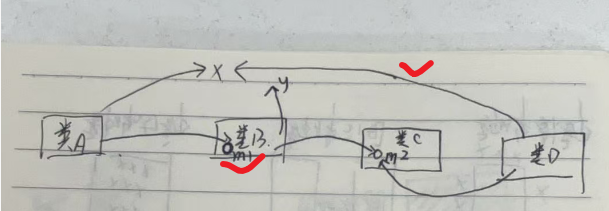 x
y
类A
类B
m1
类C
m2
类D